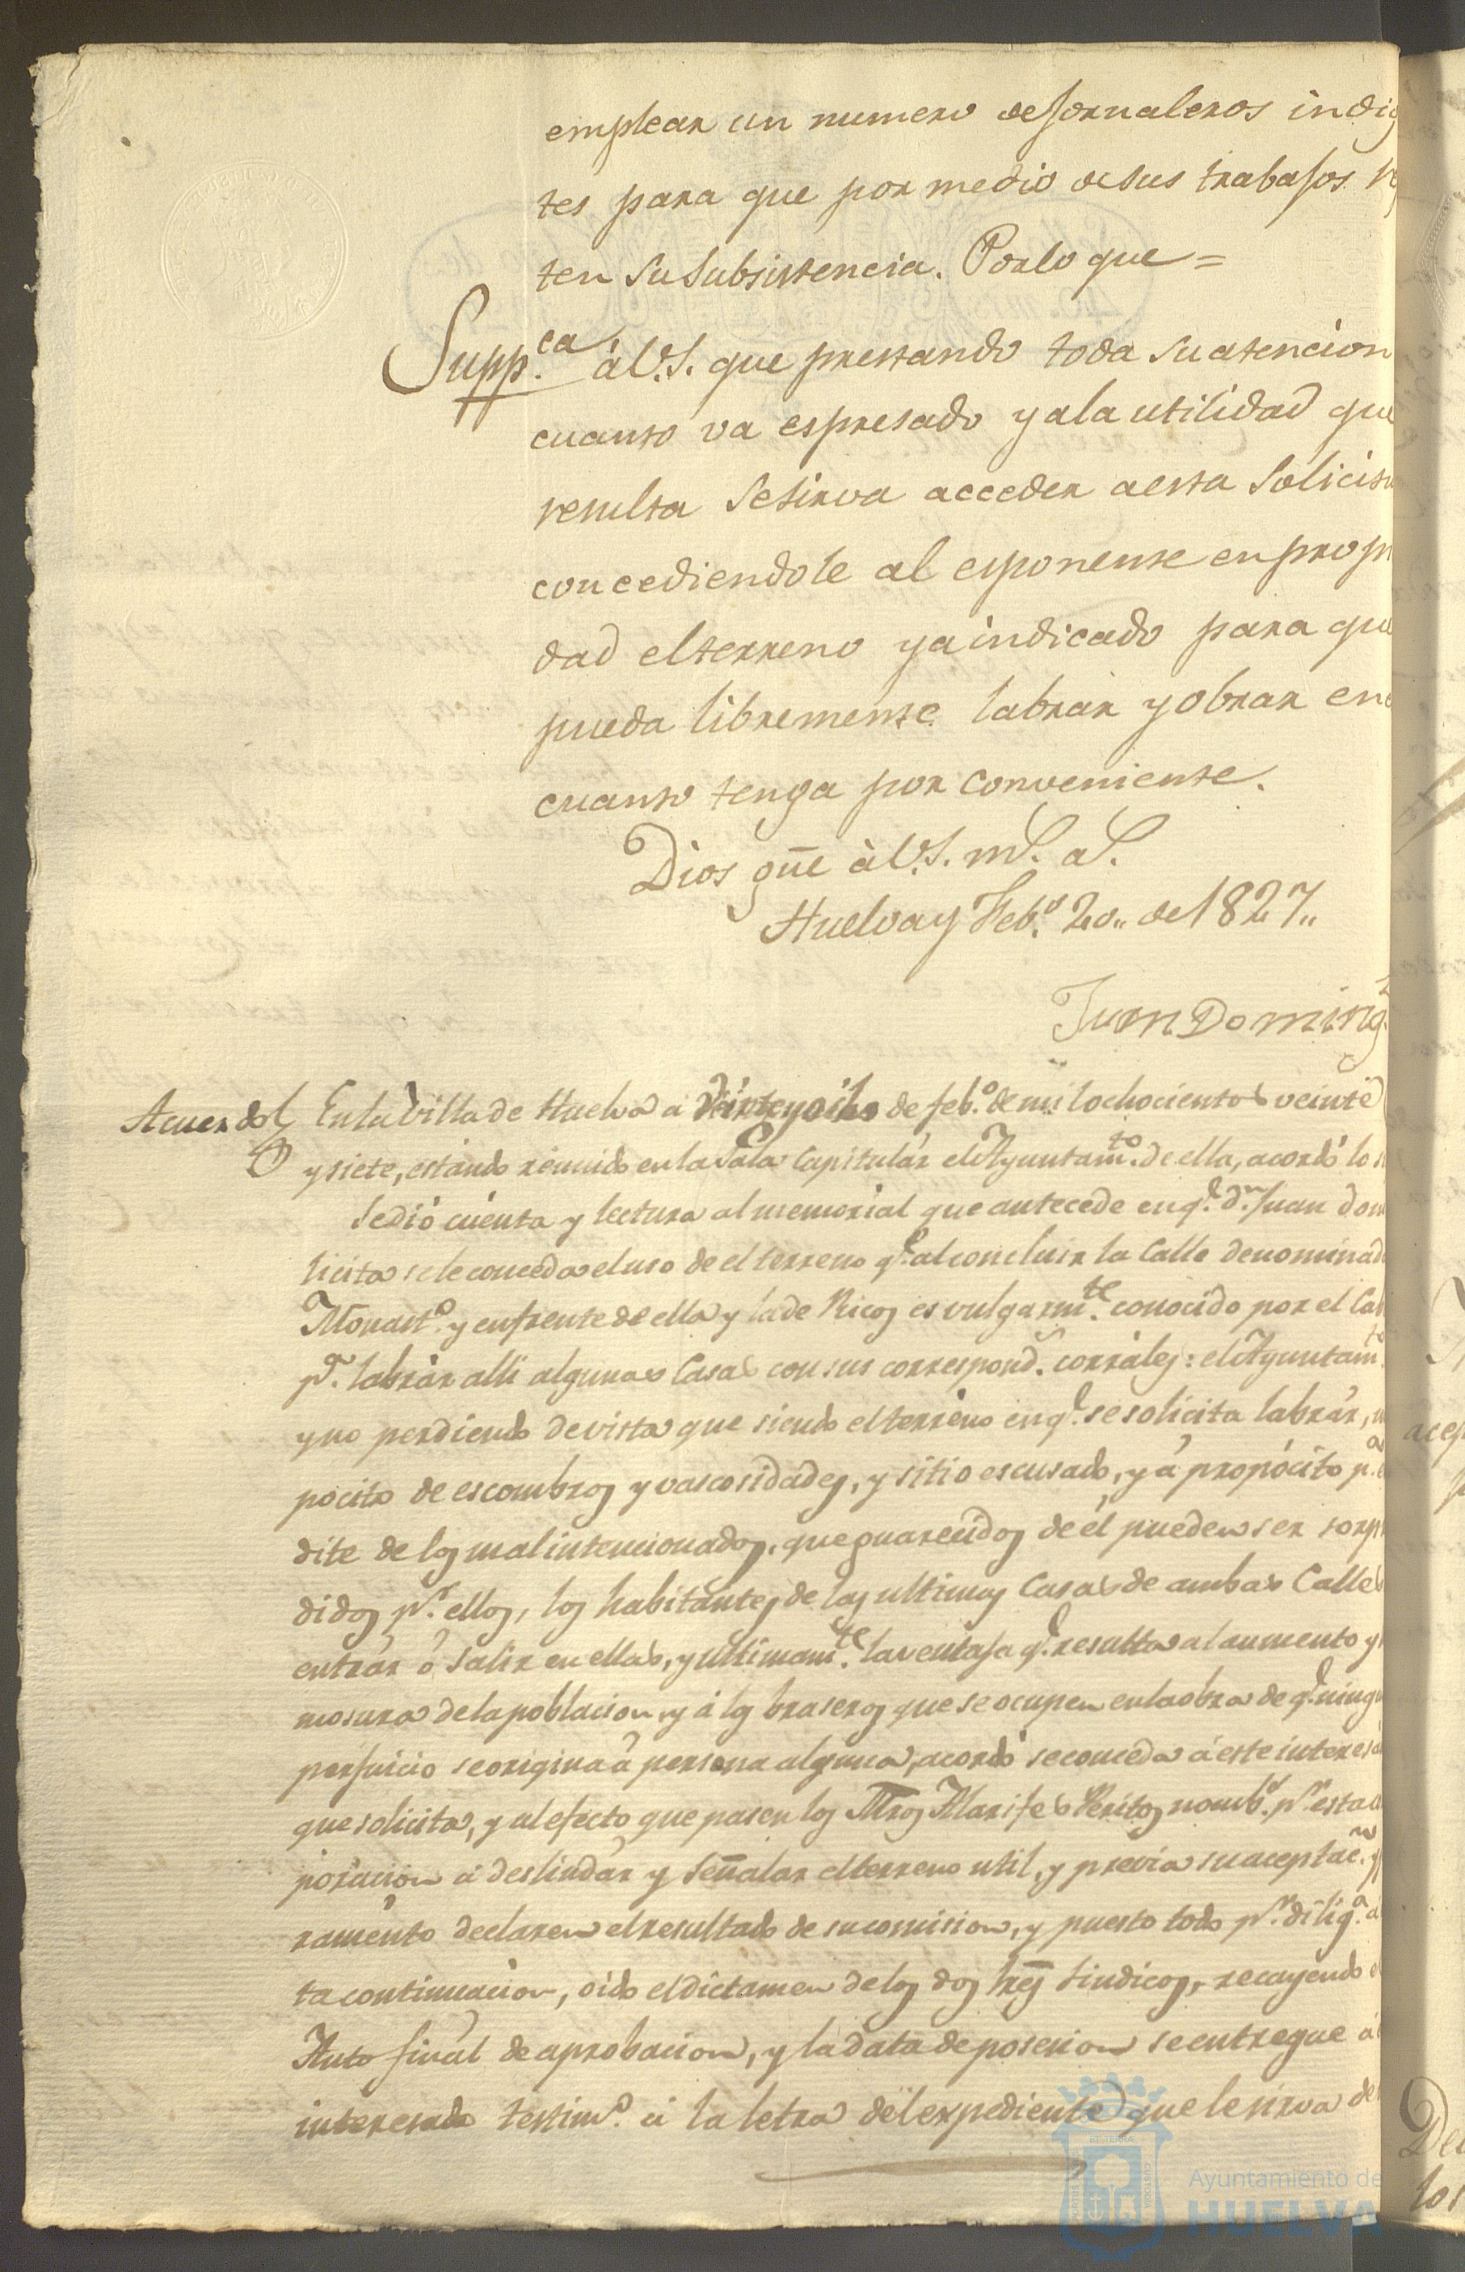 emplear un numero de Jornaleros indig
tes para que por medio de sus trabajos
ten su subsistencia. Por lo que =
Supp.ca à V.S. que prestando toda su atencion
cuanto va espresado y a la utilidad que
resulta se sirva acceder a esta solicitu
concediendole al esponente en propi
dad el terreno ya indicado para que
pueda libremente labrar y obrar en e
cuanto tenga por conveniente.
Dios gūe à V.S. m.s a.s
Huelva y Feb.o 20,, de 1827,,
Juan Doming.z
Acuerdo En la Villa de Huelva a veinte y ocho de feb.o de mil ochocientos veinte
y siete, estando reunido en la Sala Capitulár el Ayuntam.to de ella, acordó lo s
Se dió cuenta y lectura al memorial que antecede en q.e d.n Juan dom
licita se le conceda el uso de el terreno q.e al concluir la Calle denominad
Monast.o y enfrente de ella y la de Ricos es vulgarm.te conocido por el Ca
p.a labrár alli algunas Casas con sus correspond.s corráles: el Ayuntam.to
y no perdiendo de vista que siendo el terreno en q.e se solicita labrár,
pocito de escombros y vascosidades, y sitio escusado, y á propócito p.a
dite de los malintencionados, que guarecidos de él pueden ser sorp
didos p.r ellos, los habitantes de las ultimas Casas de ambas Calles
entrár ó salir en ellas, y ultimam.te la ventaja q.e resulta al aumento y
mosura de la poblacion, y á los braseros que se ocupen en la obra de q.e ning
perjuicio se origina á persona alguna, acordó se conceda á este interesa
que solicita, y al efecto que pasen los Mros Alarifes Peritos nomb.s p.r esta
poracion á deslindár y señalar el terreno util, y previa su aceptac.n y
ramento declaren el resultado de su comision, y puesto todo p.r dilig.a á
ta continuacion, oido el dictamen de los dos Sres Sindicos, recayendo e
Auto finál de aprobacion, y la data de posesion se entregue ál
interesado testim.o á la letra del expediente que le sirva de
acep
Del
los
Ayuntamiento de
HUELVA